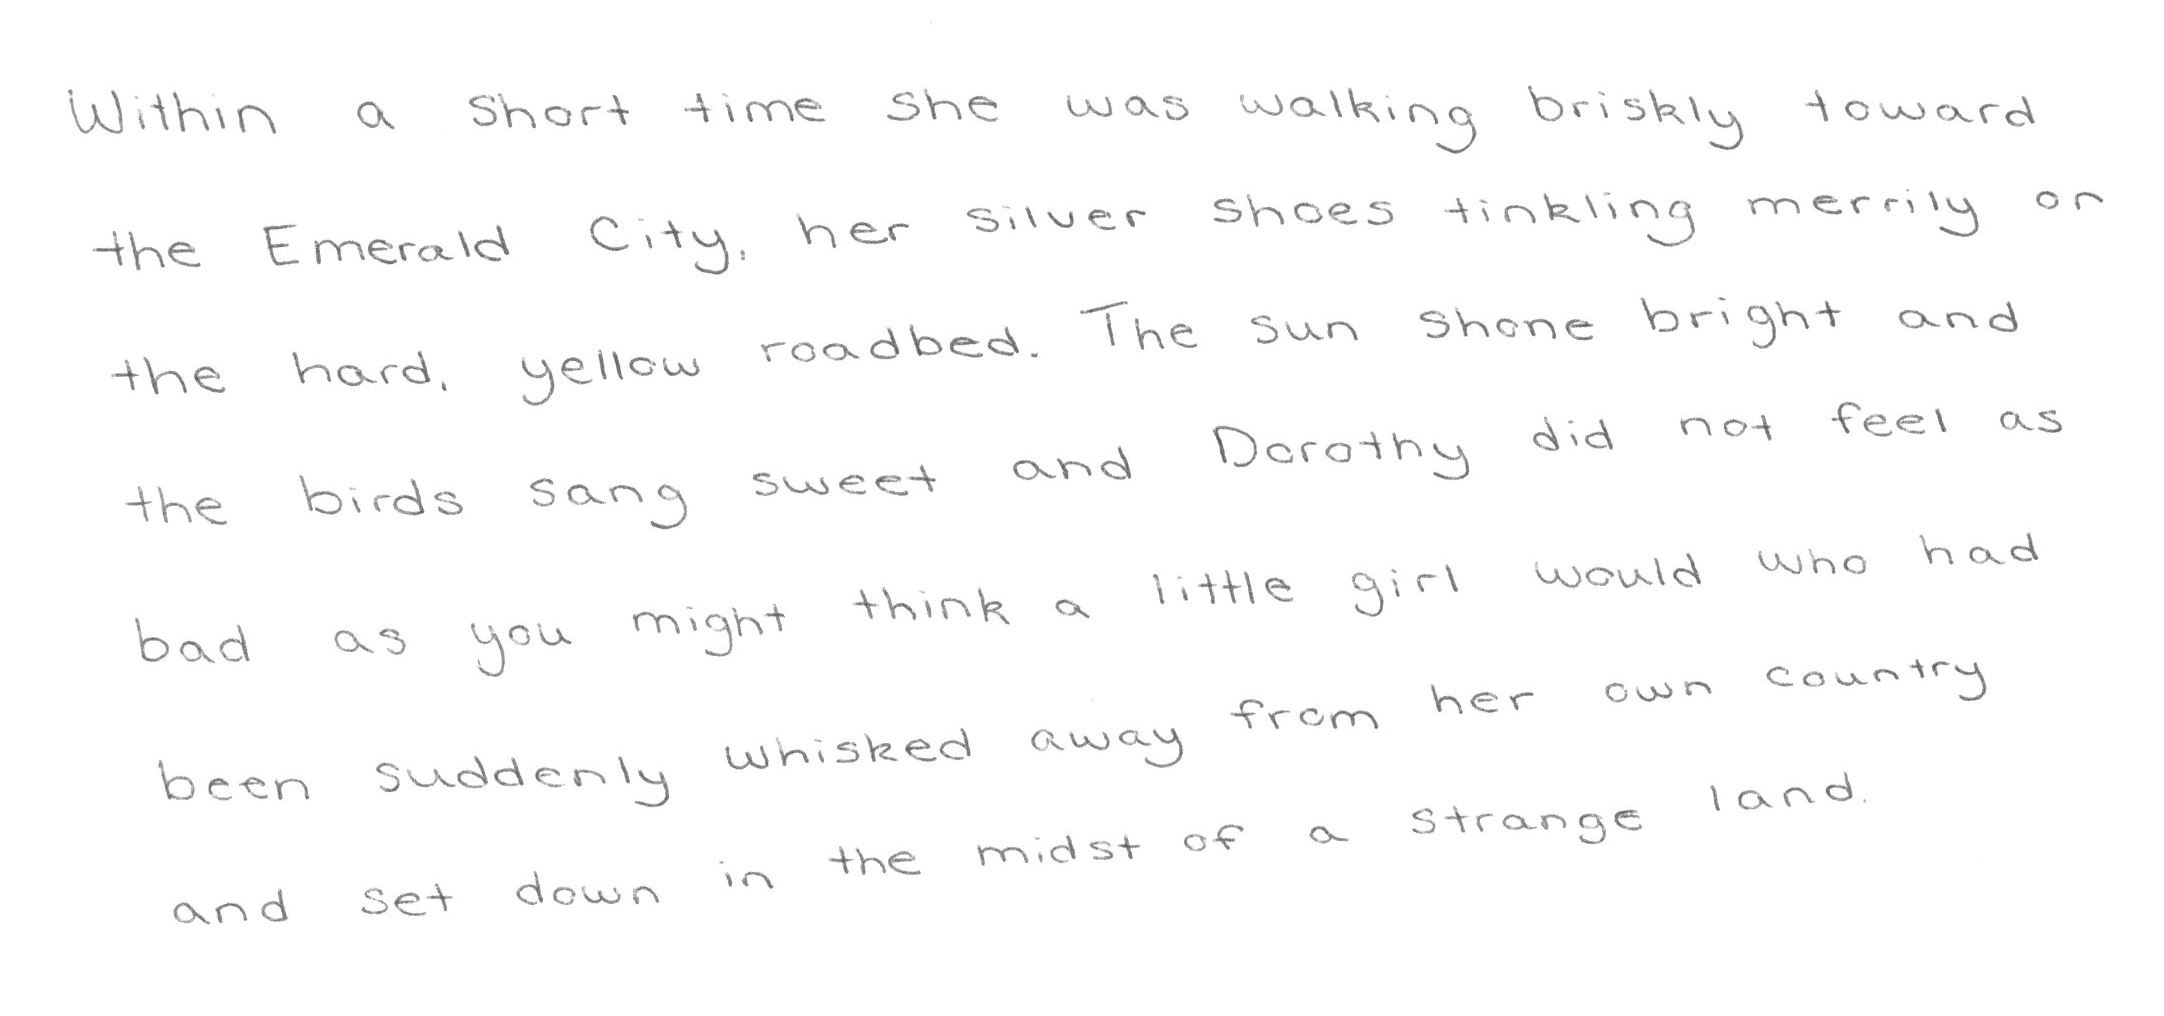 Within a short time she was walking briskly toward
the Emerald City, her silver shoes tinkling merrily on
the hard, yellow roadbed. The sun shone bright and
the birds sang sweet and Dorothy did not feel as
bad as you might think a little girl would who had
been suddenly whisked away from her own country
and set down in the midst of a strange land.